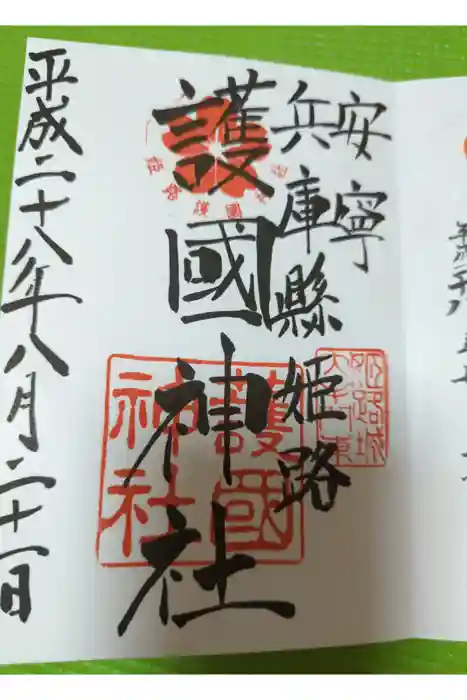 安寧
兵庫縣姫路
護國神社
平成二十八年八月二十一日
護國
神社
姫路城